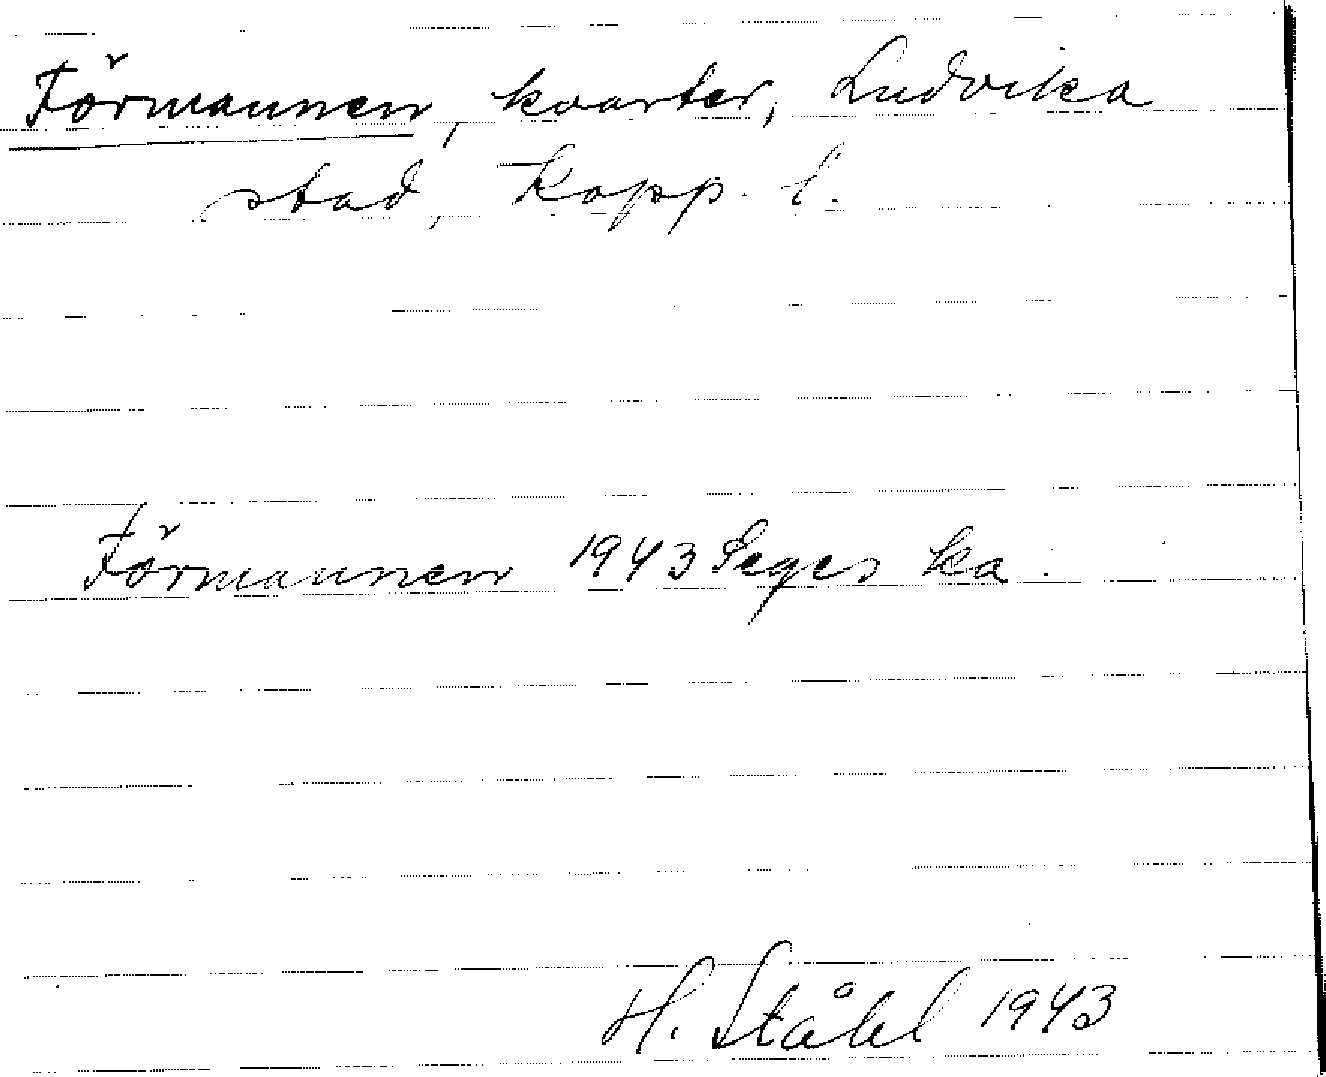 Förmannen, kvarter, Ludvika
stad, Kopp. l.
Förmannen 1943 Seges ka
H. Ståhl 1943